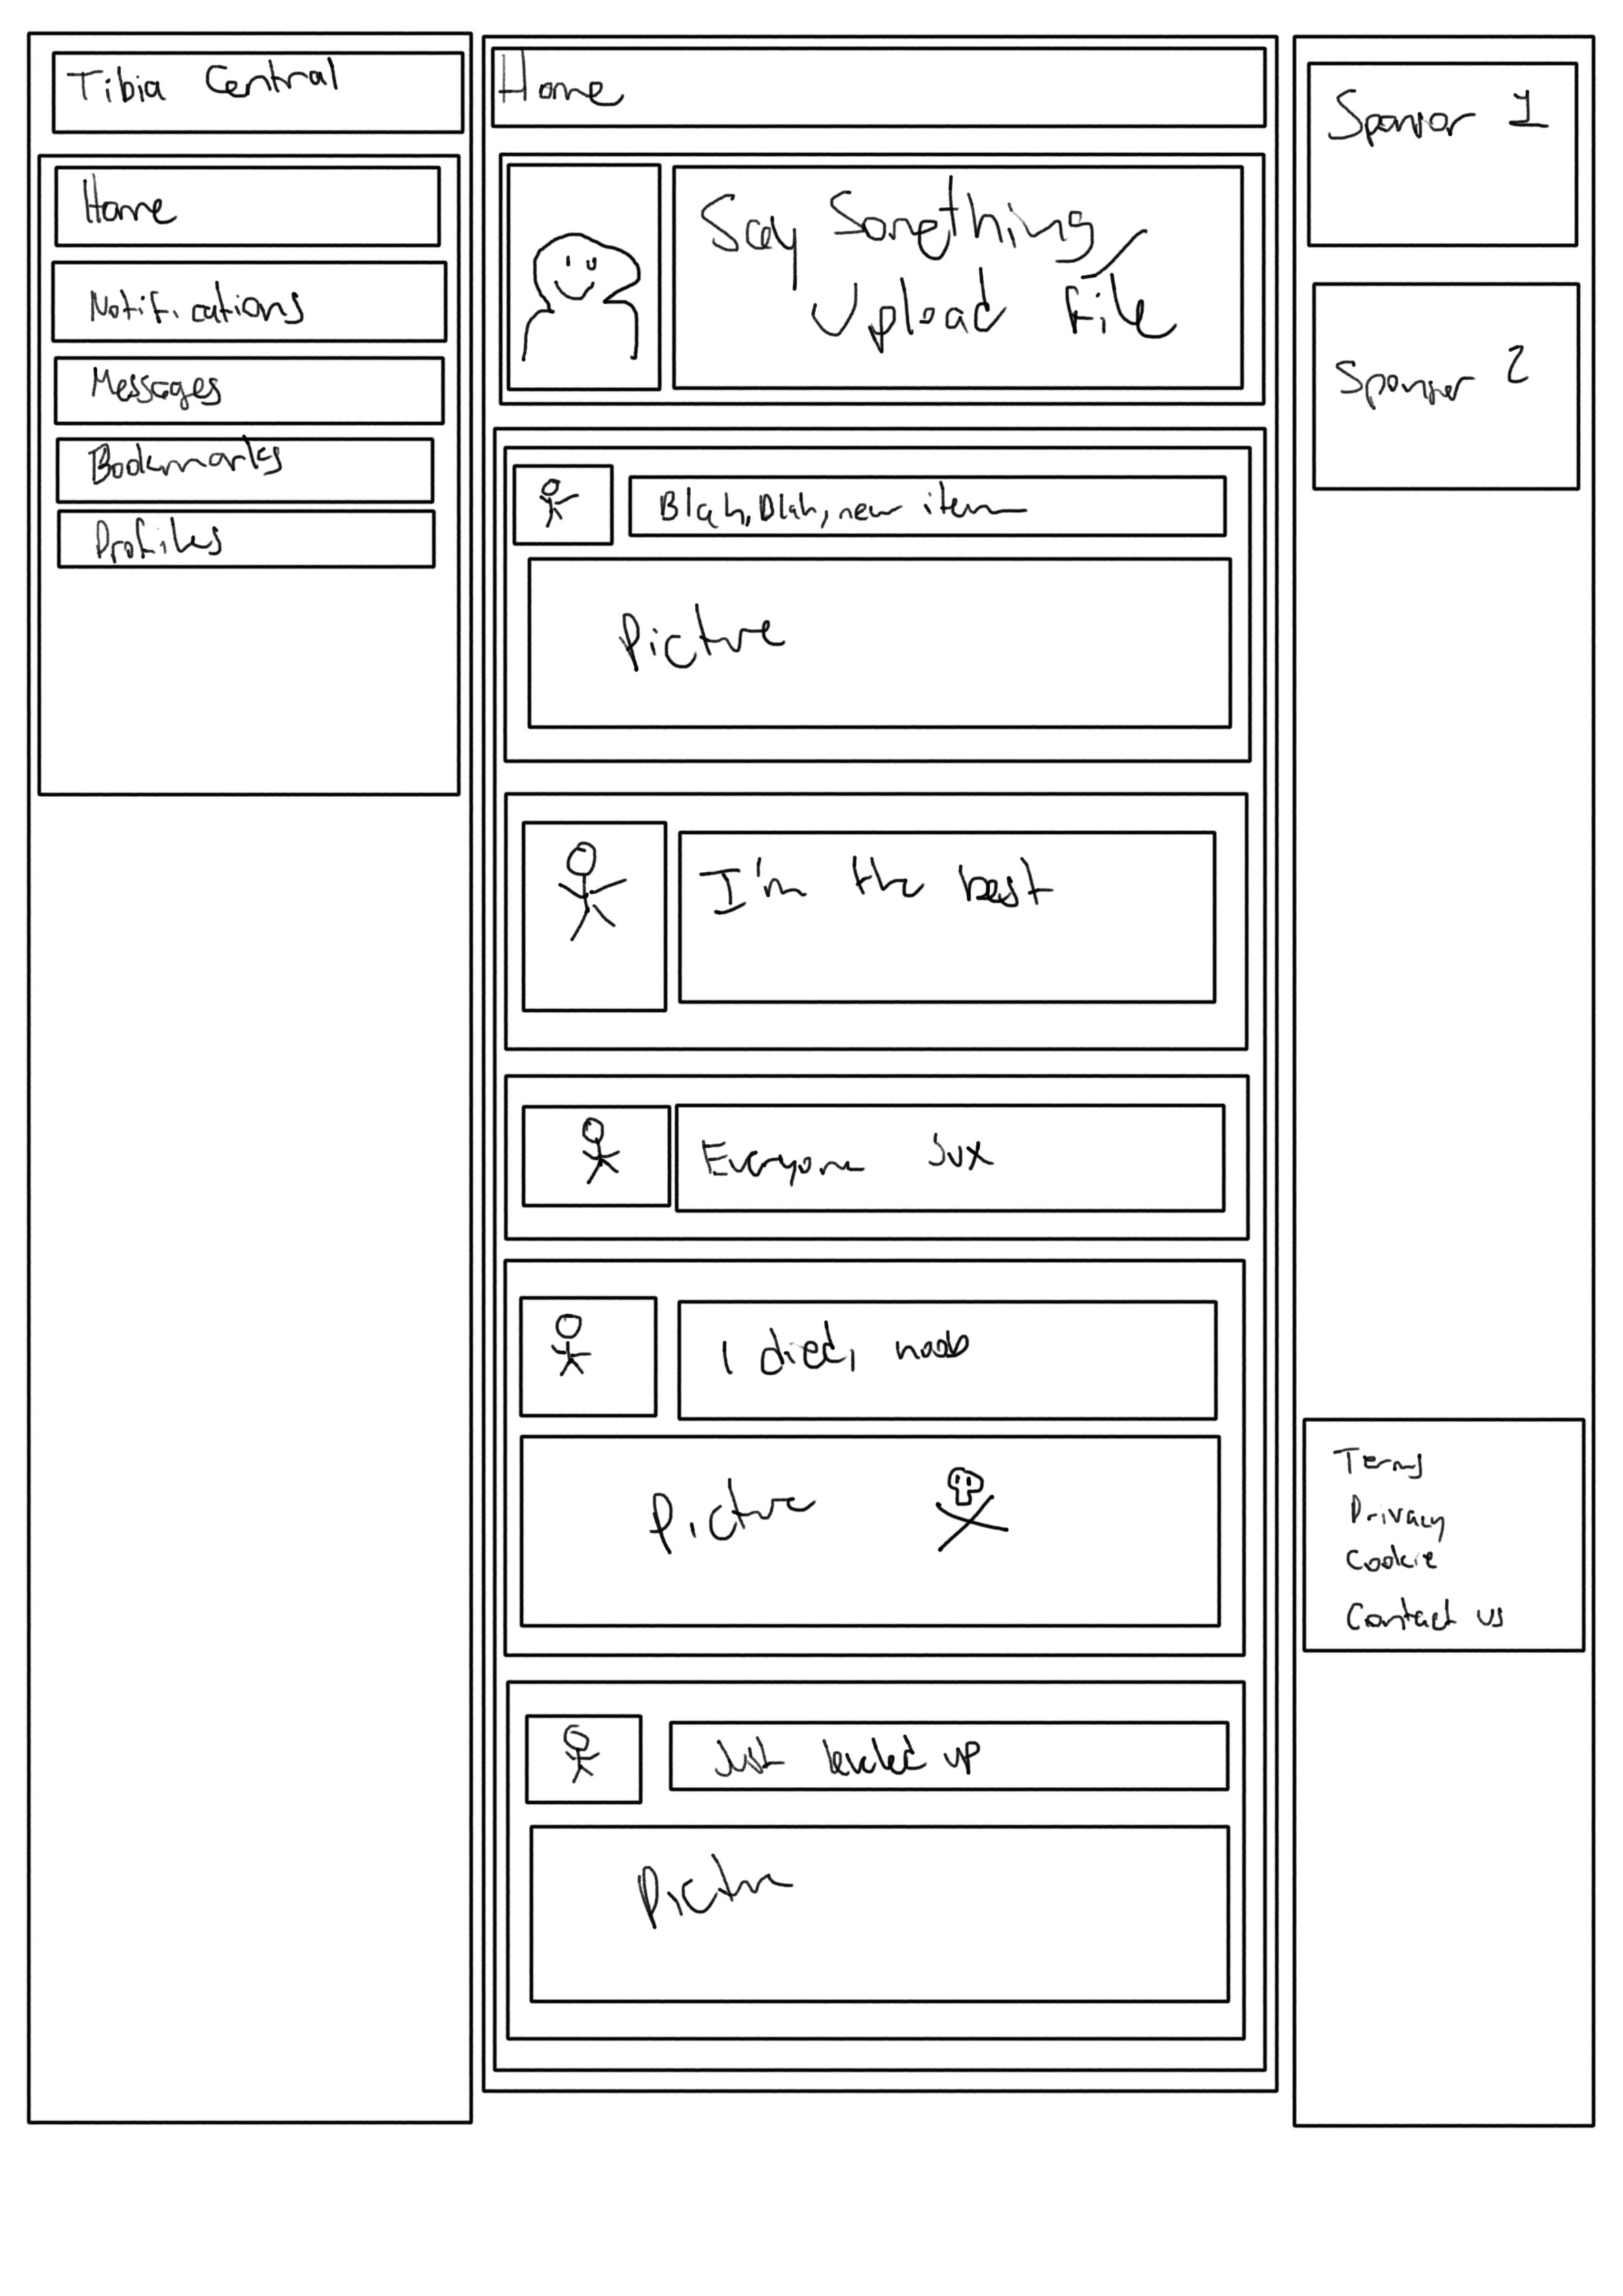 Tibia Central
Home
Notifications
Messages
Bookmarks
Profiles
Home
Say Something/
Upload File
Blah, Blah, new item
Picture
I'm the best
Everyone Sux
I died, noob
Picture
Just leveled up
Picture
Sponsor 1
Sponsor 2
Terms
Privacy
Cookie
Contact us